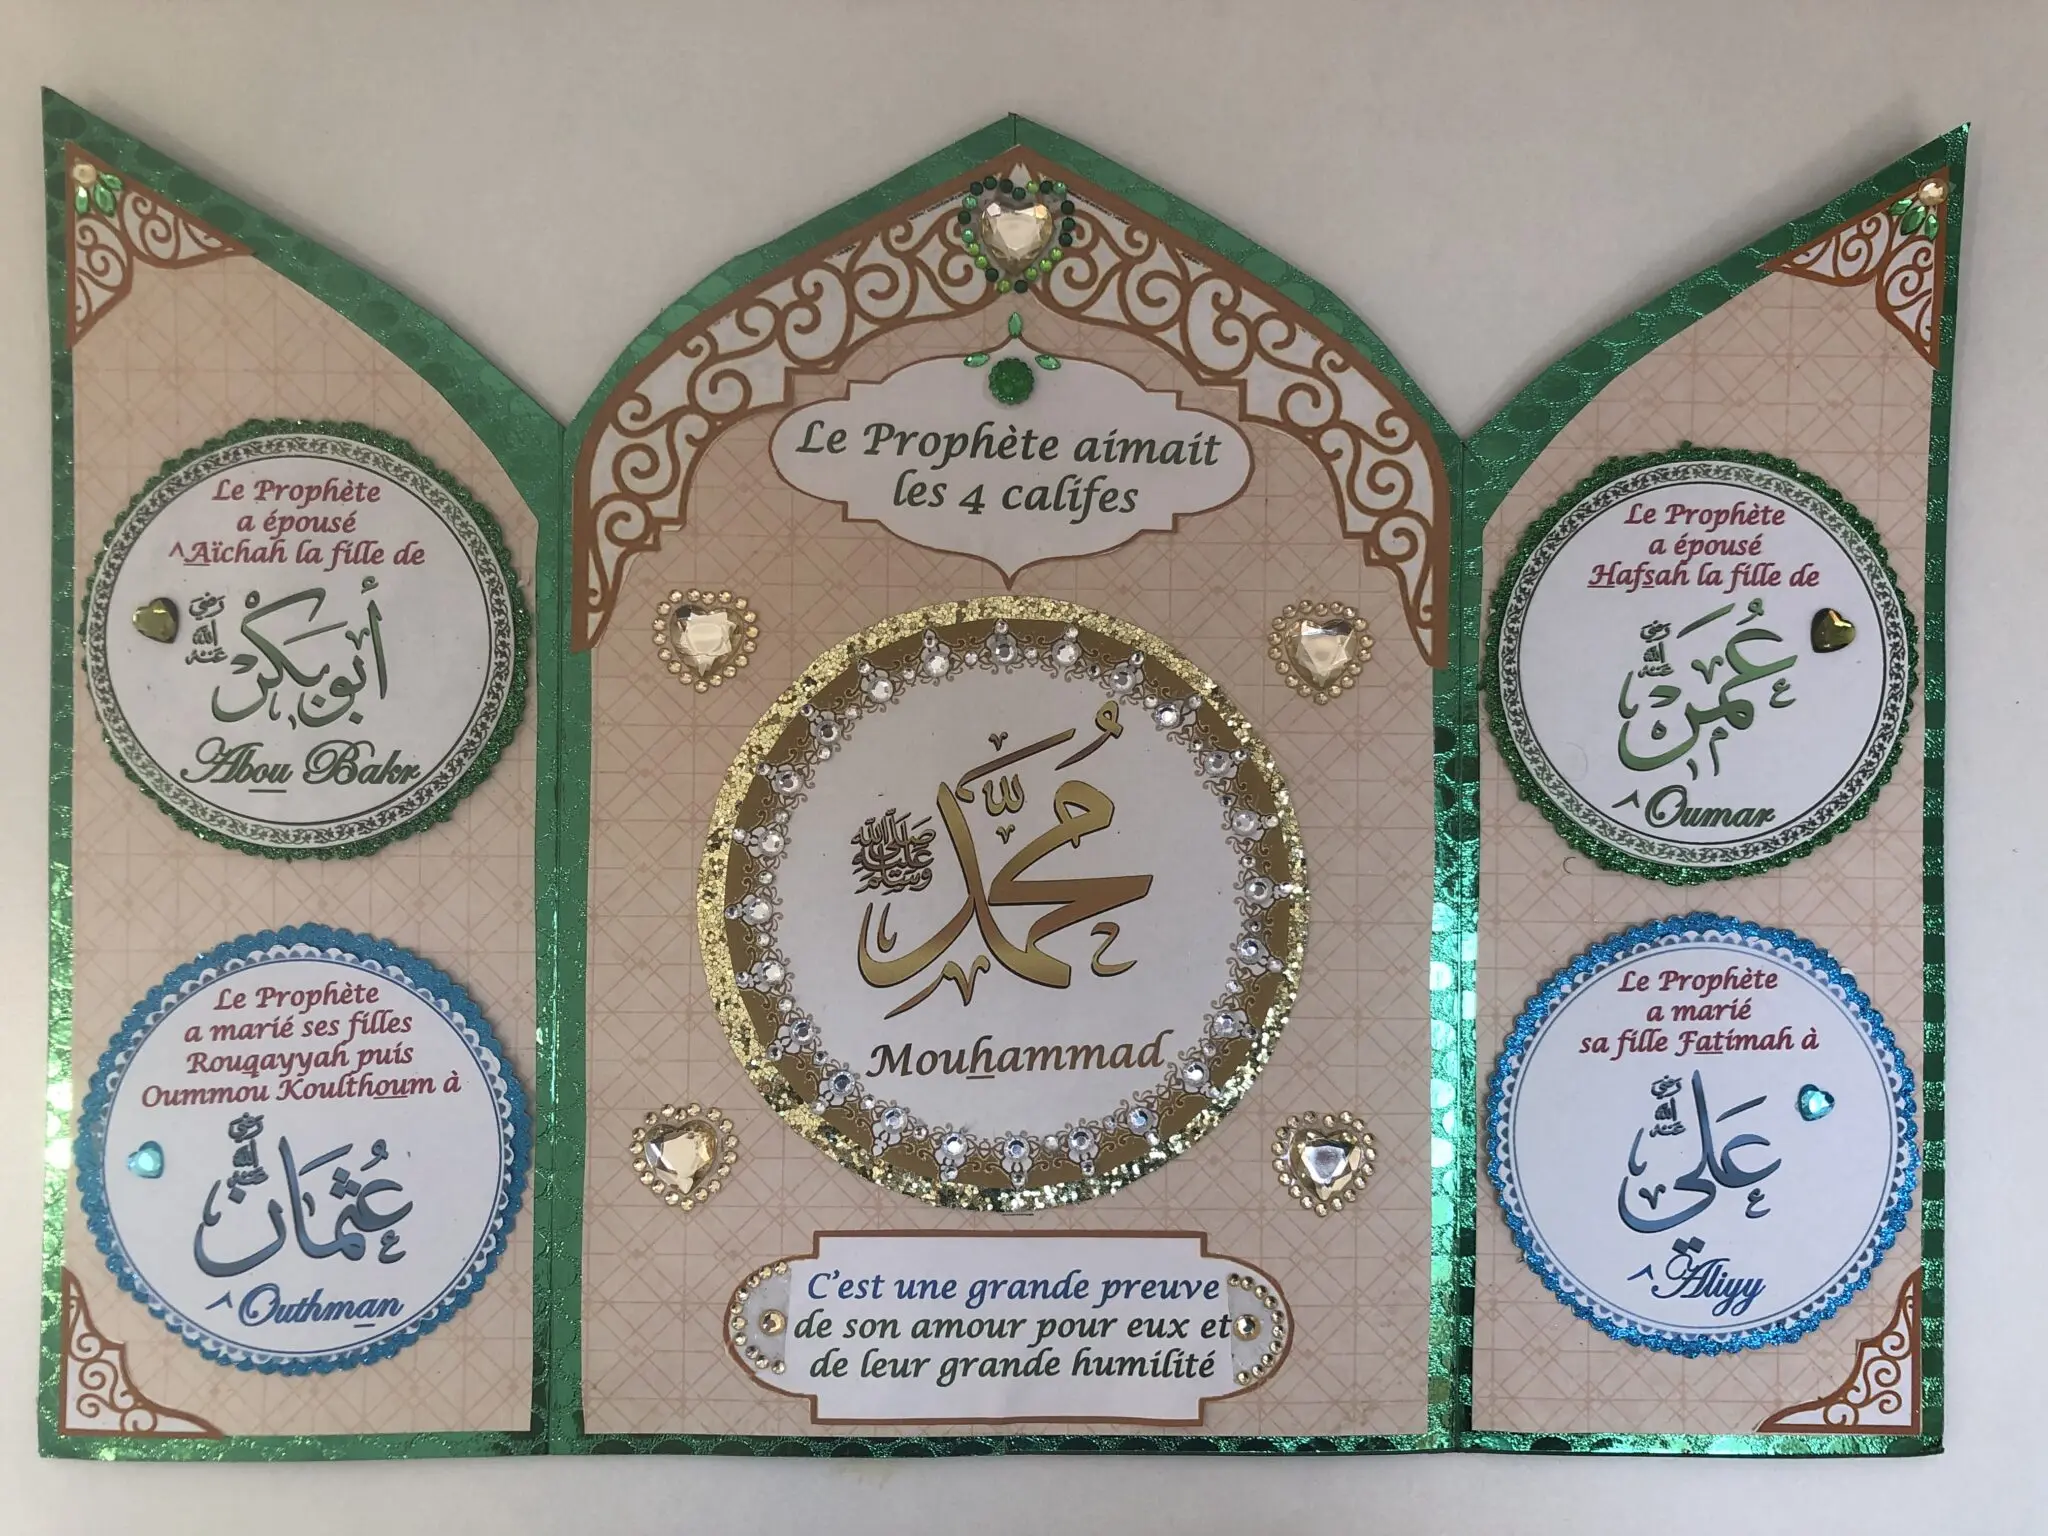 Le Prophète
a épousé
^Aïchah la fille de
رضي الله عنه
أبو بكر
Abou Bakr
Le Prophète
a marié ses filles
Rouqayyah puis
Oummou Koulthoum à
رضي الله عنه
عثمان
^Outhman
Le Prophète aimait
les 4 califes
محمد
صلى الله عليه وسلم
Mouhammad
C'est une grande preuve
de son amour pour eux et
de leur grande humilité
Le Prophète
a épousé
Hafsah la fille de
رضي الله عنه
عمر
^Oumar
Le Prophète
a marié
sa fille Fatimah à
رضي الله عنه
علي
^Aliyy